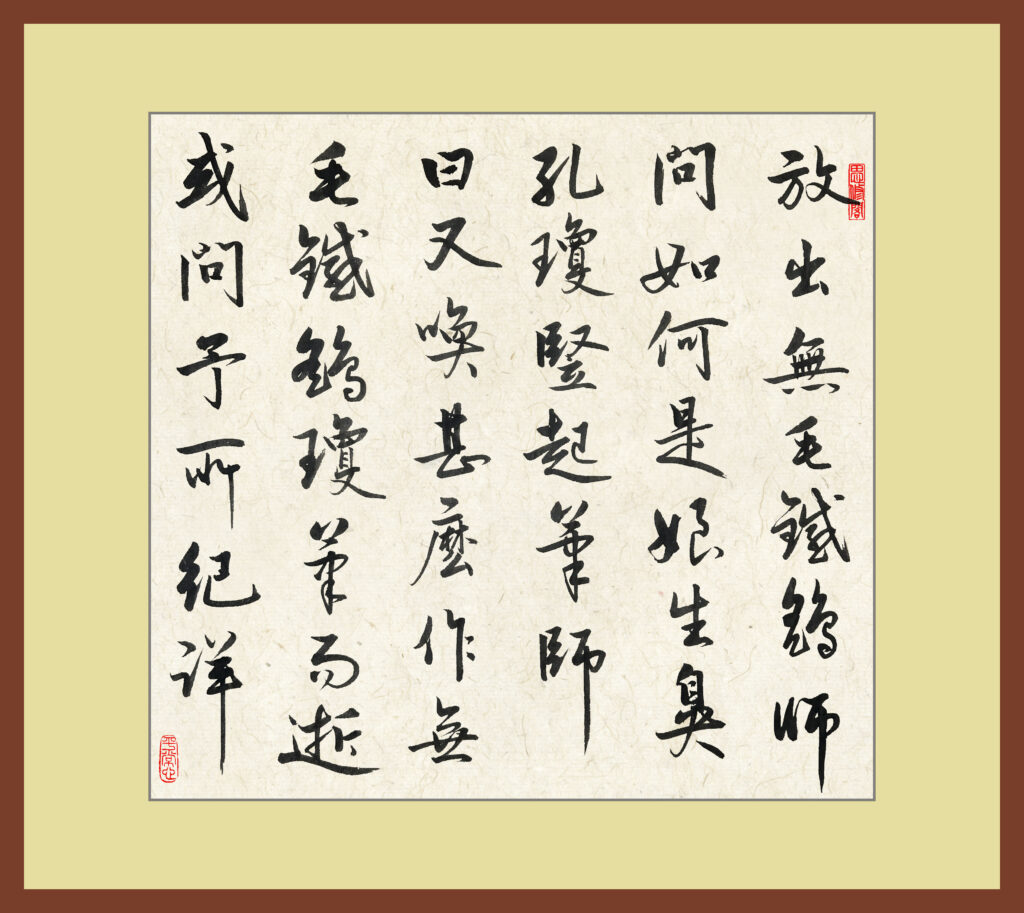 放出無毛鐵鷂師
問如何是娘生鼻
孔瓊竪起筆師
曰又喚甚麼作無
毛鐵鷂瓊筆而逝
或問予所紀詳
平常心